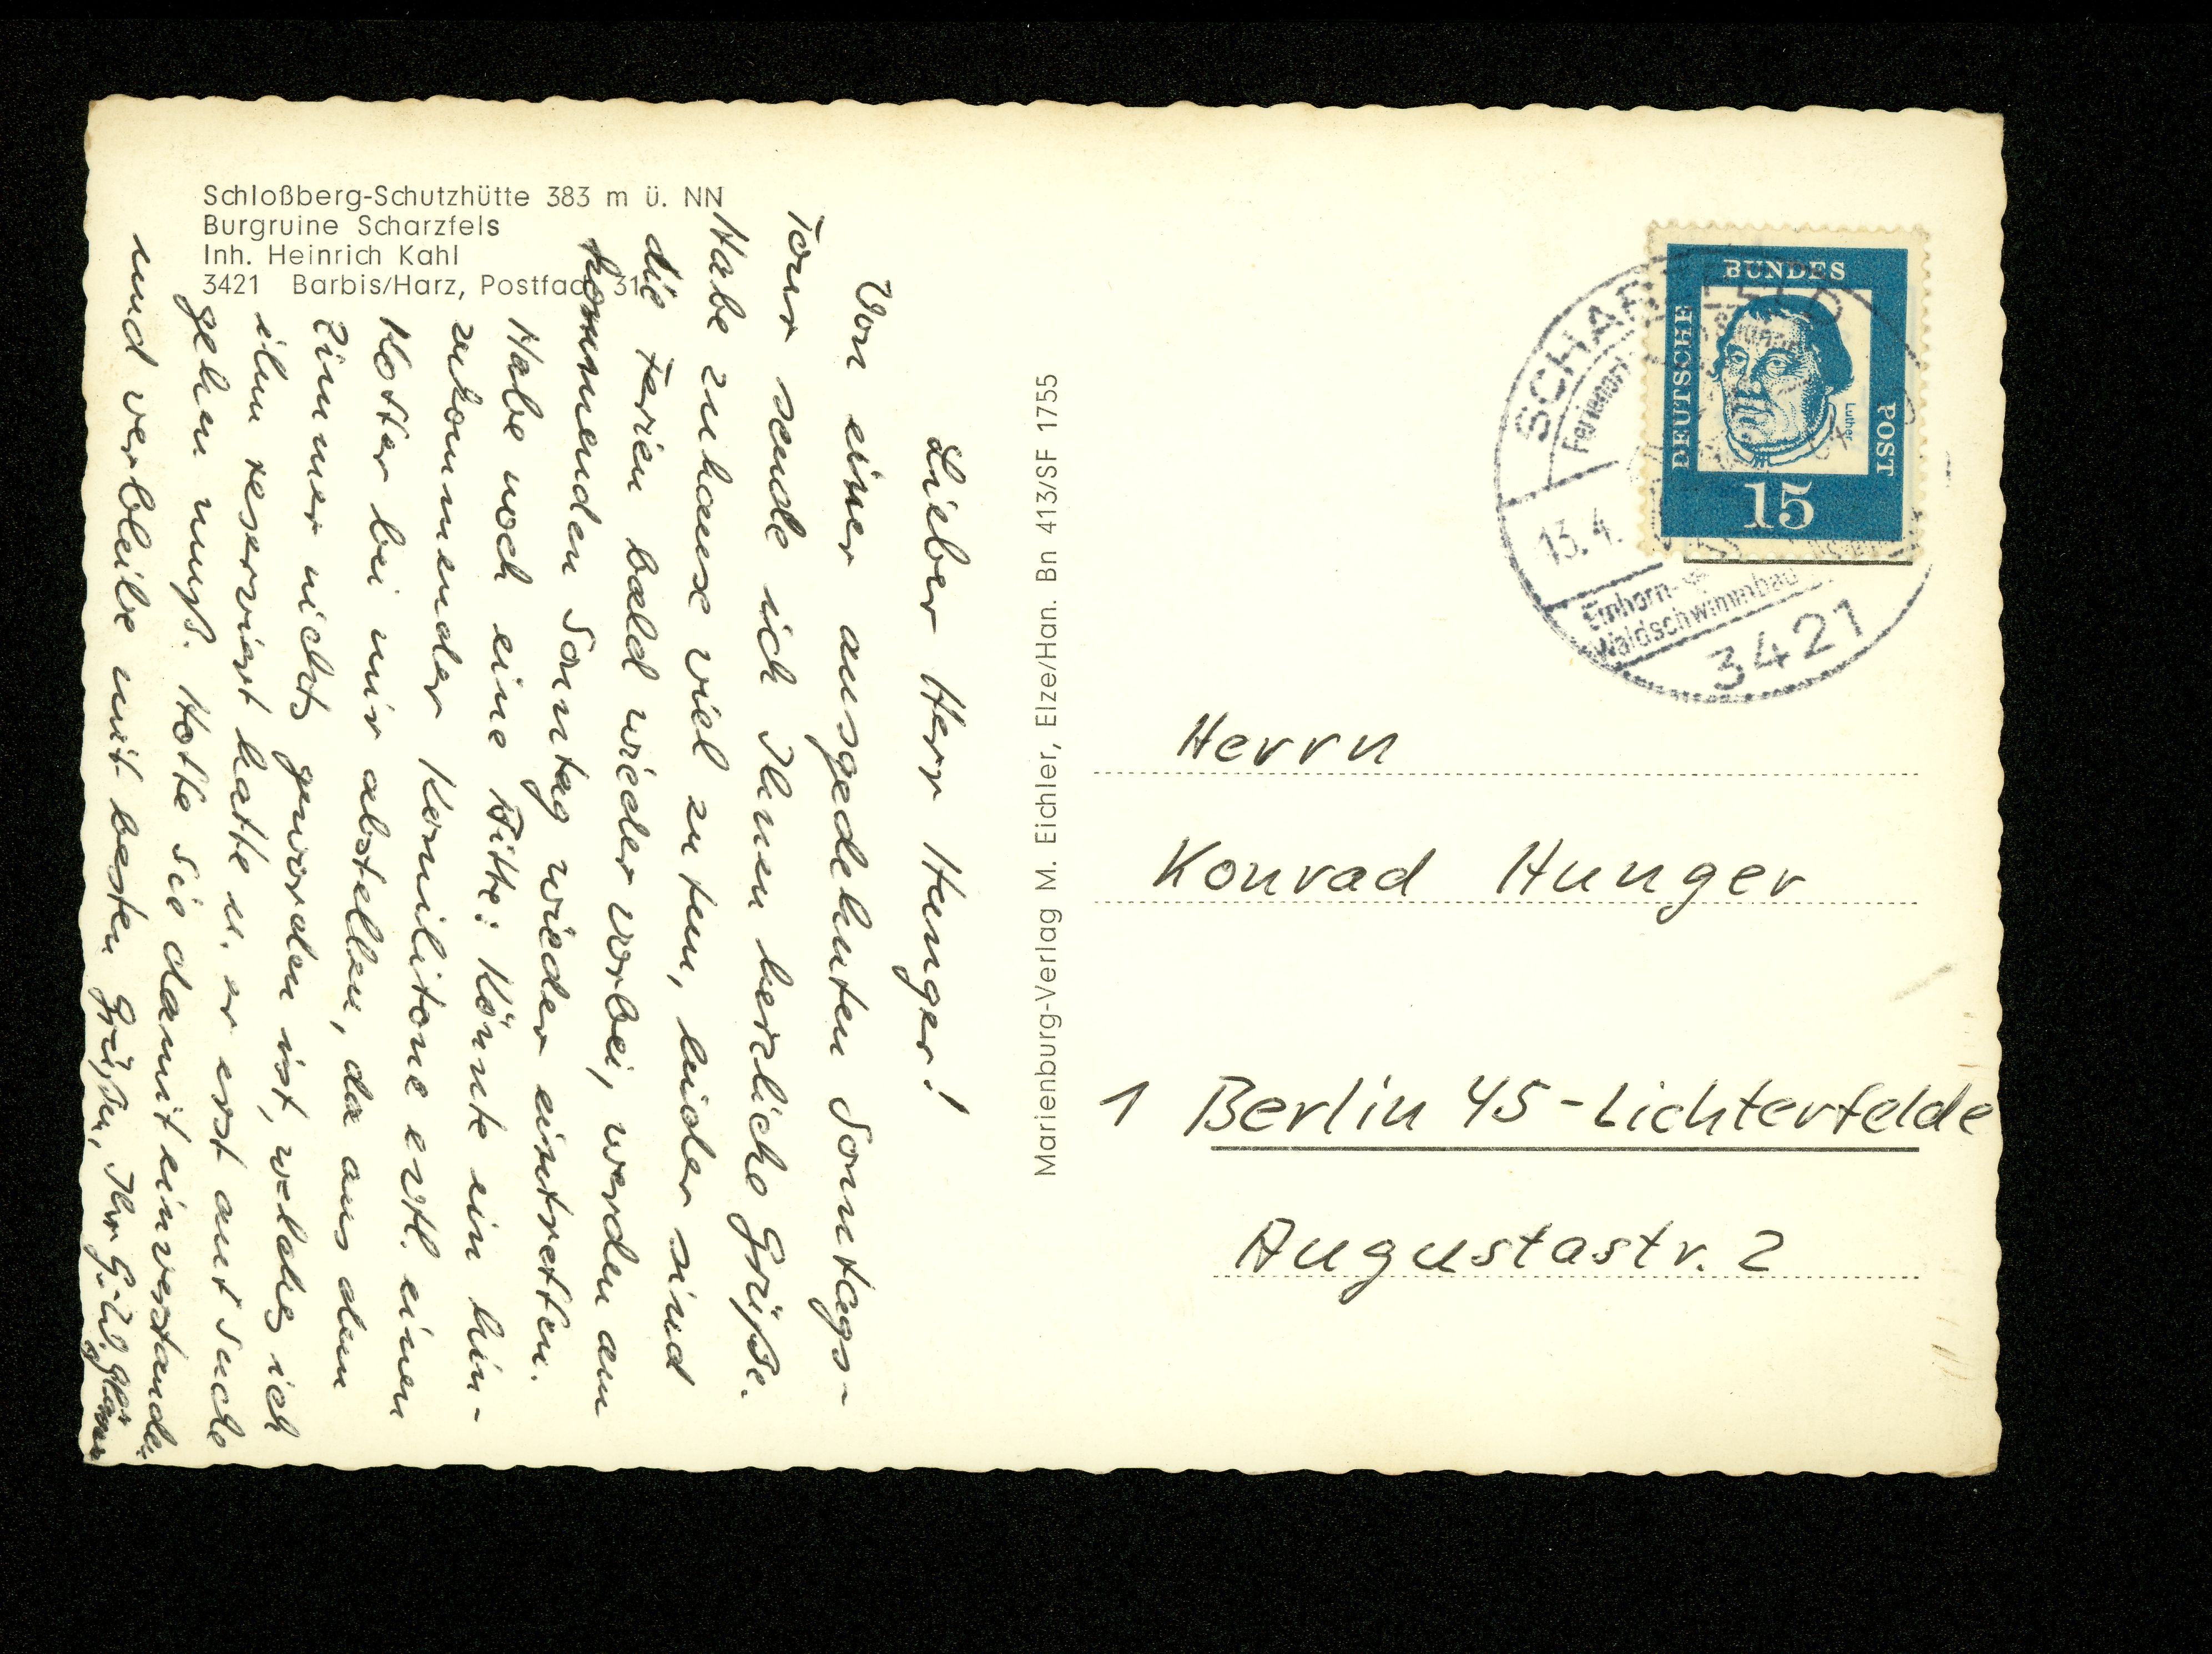 Schloßberg-Schutzhütte 383 m ü. NN
Burgruine Scharzfels
Inh. Heinrich Kahl
3421 Barbis/Harz, Postfach 31
Lieber Herr Hunger!
Von einer ausgedehnten Sonntags-
tour sende ich Ihnen herzliche Grüße.
Habe zuhause viel zu tun, leider sind
die Ferien bald wieder vorbei, werden am
kommenden Sonntag wieder eintreffen.
Habe noch eine Bitte: Könnte ein hin-
zukommender Komilitone evtl. einen
Koffer bei mir abstellen, da aus dem
Zimmer nichts geworden ist, welches ich
ihm reserviert hatte u. er erst auf Suche
gehen muß. Hoffe Sie damit einverstanden
und verbleibe mit besten Grüßen, Ihr G.W.
Marienburg-Verlag M. Eichler, Elze/Han. Bn 413/SF 1755
DEUTSCHE
BUNDES
POST
Luther
15
SCHARZFELD
Feriendorf
13.4.
Einhorn-
Waldschwimmbad
3421
Herrn
Konrad Hunger
1 Berlin 45-Lichterfelde
Augustastr. 2